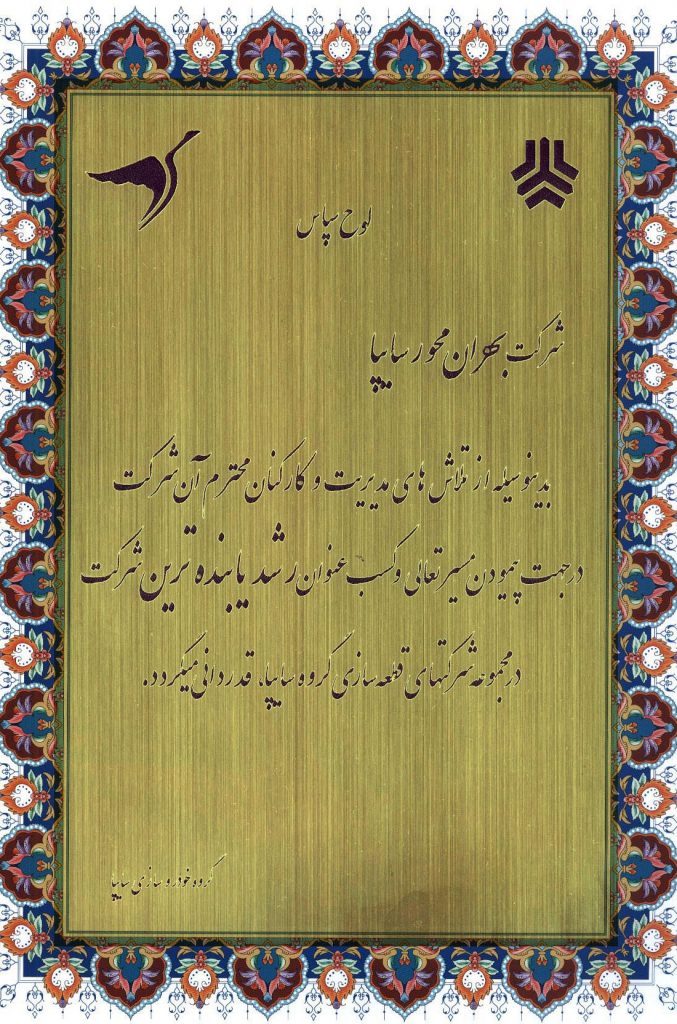 لوح سپاس
شرکت بهران محور سایپا
بدینوسیله از تلاش های مدیریت و کارکنان محترم آن شرکت
در جهت پیمودن مسیر تعالی و کسب عنوان رشد یابنده ترین شرکت
در مجموعه شرکتهای قطعه سازی گروه سایپا، قدردانی میگردد.
گروه خودروسازی سایپا